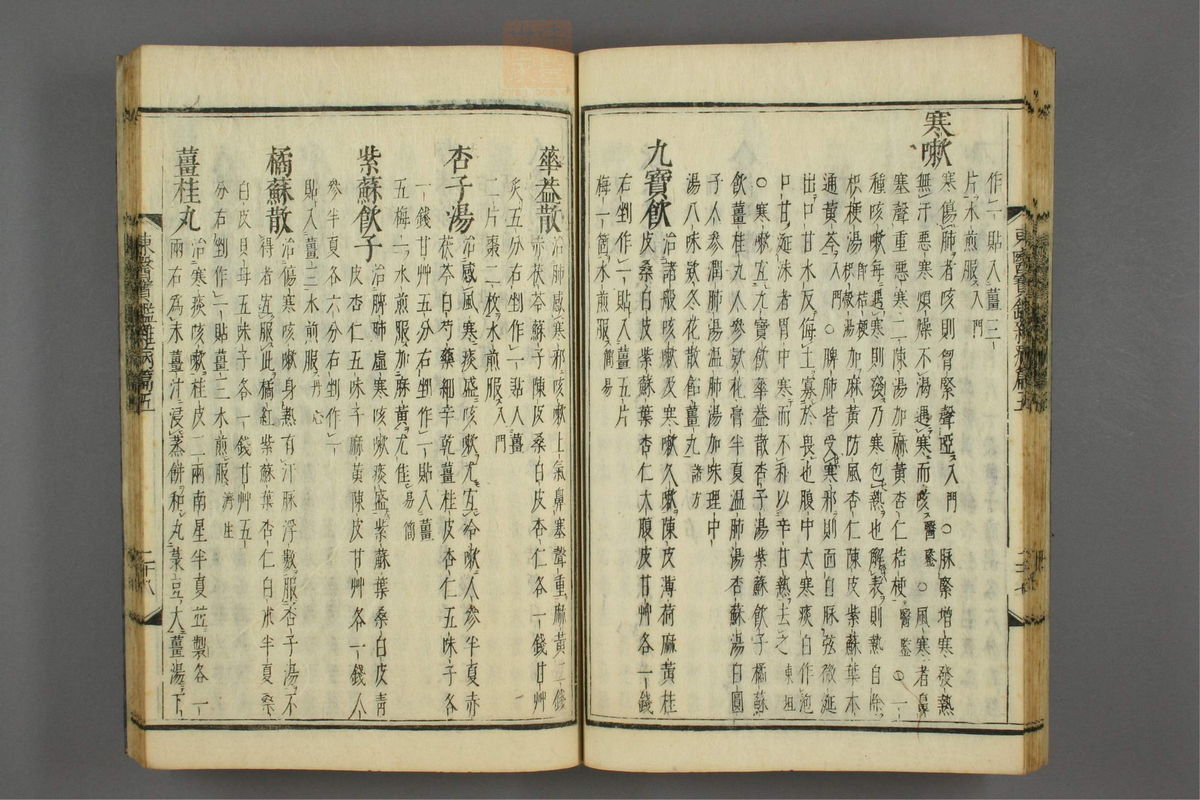 作一貼入薑三
片水煎服入門
寒嗽
寒傷肺者咳則胷緊聲啞入門○脉緊增寒發熱
無汗惡寒煩燥不渴遇寒而咳醫鑑○風寒者鼻
塞聲重惡寒二陳湯加麻黃杏仁桔梗醫鑑○一
種咳嗽每遇寒則發乃寒包熱也解表則熱自除
枳梗湯卽桔梗枳殼湯加麻黃防風杏仁陳皮紫蘇葉木
通黃芩入門○脾肺皆受寒邪則面白脉弦微涎
出口甘水反侮土寡於畏也腹中大寒痰白作泡
口甘涎沫者胃中寒而不和以辛甘熱去之東垣
○寒嗽宜九寶飮華盖散杏子湯紫蘇飮子橘蘇
飮薑桂丸人參款花膏半夏溫肺湯杏蘇湯白圓
子人參潤肺湯溫肺湯加味理中
湯八味款冬花散飴薑丸諸方
九寶飮
治諸般咳及寒嗽久嗽陳皮薄荷麻黃桂
皮桑白皮紫蘇葉杏仁大腹皮甘艸各一錢
右剉作一貼入薑五片
梅一箇水煎服簡易
東醫寶鑑雜病篇五
華盖散
治肺感寒邪咳嗽上氣鼻塞聲重麻黃二錢
赤茯苓蘇子陳皮桑白皮杏仁各一錢甘艸
炙五分右剉作一貼入薑
二片棗二枚水煎服入門
杏子湯
治感風寒痰盛咳嗽尤宜冷嗽人參半夏赤
茯苓白芍藥細辛乾薑桂皮杏仁五味子各
一錢甘艸五分右剉作一貼入薑
五梅一水煎服加麻黃尤佳易簡
紫蘇飮子
治脾肺虛寒咳嗽痰盛紫蘇葉桑白皮靑
皮杏仁五味子麻黃陳皮甘艸各一錢人
參半夏各六分右剉作一
貼入薑三水煎服丹心
橘蘇散
治傷寒咳嗽身熱有汗脉浮數服杏子湯不
得者宜服此橘紅紫蘇葉杏仁白朮半夏桑
白皮貝母五味子各一錢甘艸五
分右剉作一貼薑三水煎服濟生
薑桂丸
治寒痰咳嗽桂皮二兩南星半夏並製各一
兩右爲末薑汁浸蒸餠和丸菉豆大薑湯下
東醫寶鑑雜病篇五
二十八